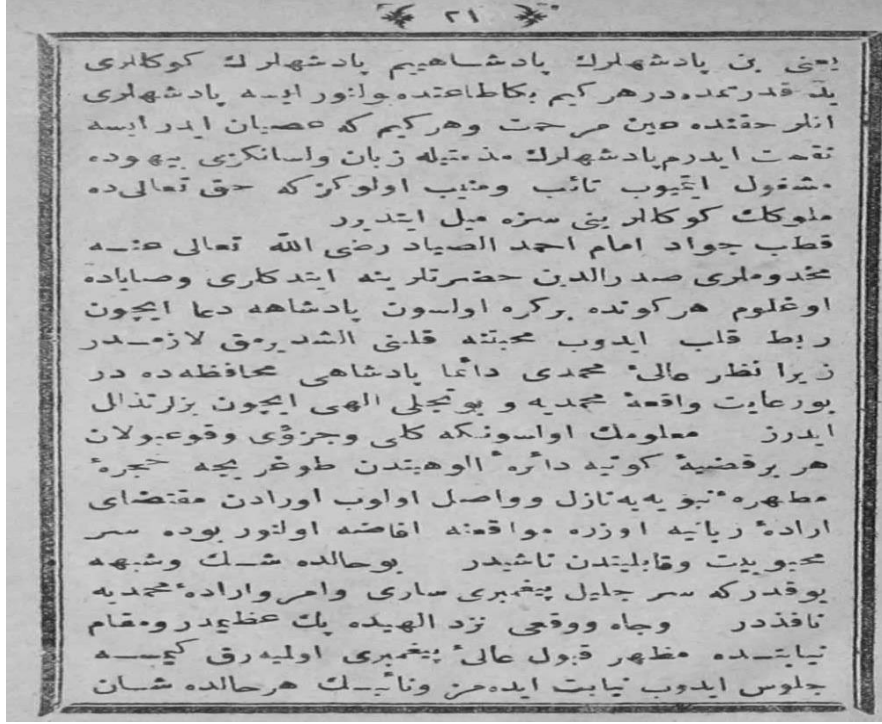 ٢١
يعنى بن پادشهلرك پادشاهييم پادشهلرك كوكللرى
يد قدرتمده در هر كيم بكا طاعتده بولنور ايسه پادشهلرى
انلر حقنده عين مرحمت وهر كيم كه عصيان ايدر ايسه
نقمت ايدرم پادشهلرك مذمتيله زبان ولسانكزى بيهوده
مشغول ايتميوب تائب ومنيب اولوكز كه حق تعالى ده
ملوكك كوكللرينى سزه ميل ايتديرر
قطب جواد امام احمد الصياد رضى الله تعالى عنه
مخدوملرى صدرالدين حضرتلرينه ايتدكلرى وصاياده
اوغلوم هر كونده بر كره اولسون پادشاهه دعا ايچون
ربط قلب ايدوب محبتنه قلبنى الشديرمق لازمدر
زيرا نظر عالئ محمدى دائما پادشاهى محافظه ده در
بو رعايت واقعهٔ محمديه و بو تجلى الهى ايچون بزلر تذلل
ايدرز معلومك اولسونكه كلى وجزؤى وقوعبولان
هر بر قضيهٔ كونيه دائرهٔ الوهيتدن طوغريجه حجرهٔ
مطهرهٔ نبويه يه نازل وواصل اولوب اورادن مقتضاى
ارادهٔ ربانيه اوزره مواقعنه افاضه اولنور بوده سر
محبوبيت وقابليتدن ناشيدر بو حالده شك وشبهه
يوقدر كه سر جليل پيغمبرى سارى وامر وارادهٔ محمديه
نافذدر وجاه ووقعى نزد الهيده پك عظيمدر ومقام
نيابتده مظهر قبول عالئ پيغمبرى اولميه رق كيمسه
جلوس ايدوب نيابت ايده مز ونائبك هر حالده شان